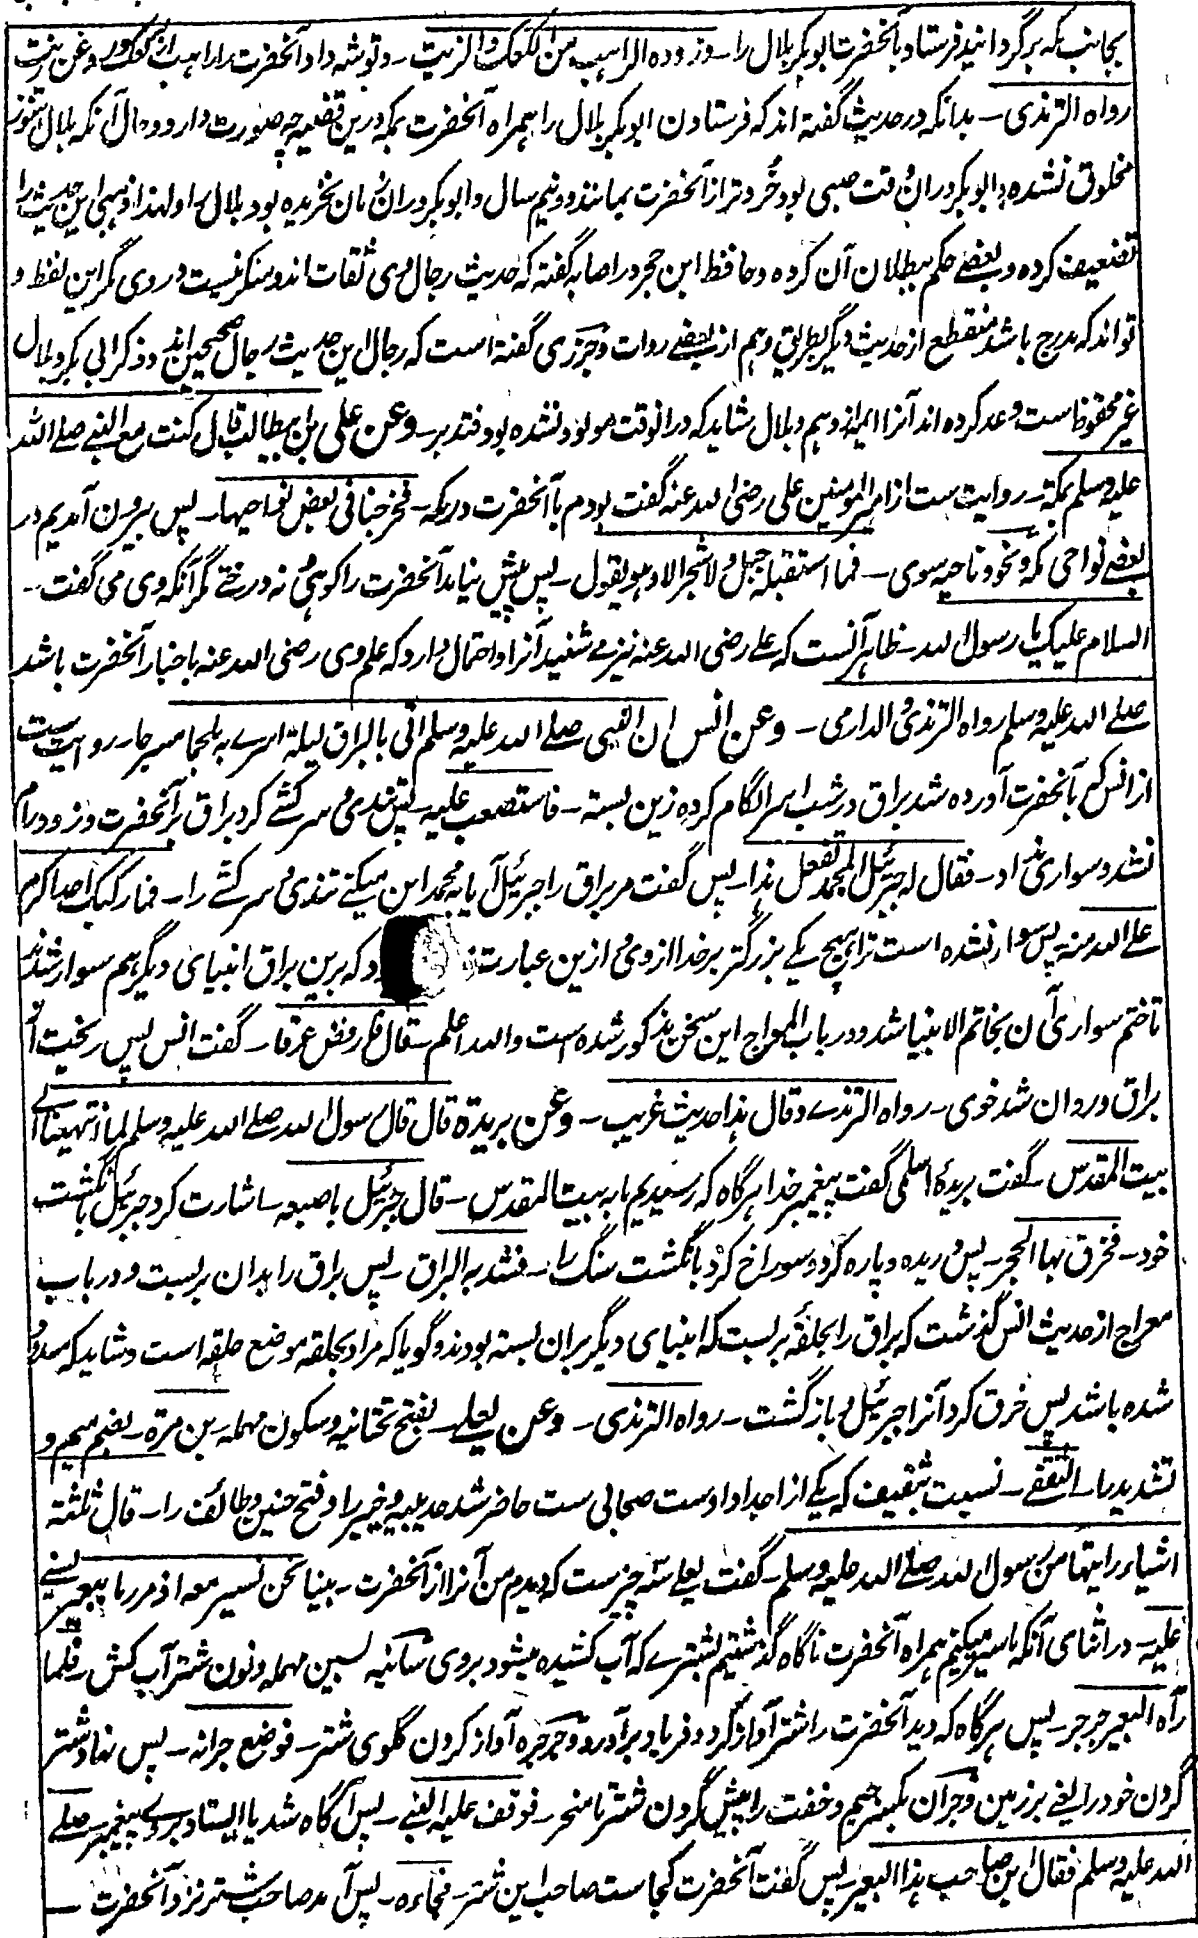 بجانب مکه برگردانید فرستاد بآنحضرت ابوبکر بلال را – وزوده الراهب من الکعک والزیت – و توشه داد آنحضرت را راهب از کعک و روغن زیت
رواه الترمذی – بدانکه در حدیث گفته اند که فرستادن ابوبکر بلال را همراه آنحضرت بمکه درین قضیه چه صورت دارد و حال آنکه بلال هنوز
مخلوق نشده و ابوبکر دران وقت صبی بود خُردتر از آنحضرت بمانند دو نیم سال و ابوبکر دران زمان نخریده بود بلال را و لهذا ذهبی این حدیث را
تضعیف کرده و بعضے حکم ببطلان آن کرده و حافظ ابن حجر در اصابه گفته که حدیث رجال وی ثقات اند و منکر نیست در وی مگر این لفظ و
تواند که مدرج باشد منقطع از حدیث دیگر بطریق وهم از بعضے روات و جزری گفته است که رجال این حدیث رجال صحیحین اند و ذکر ابی بکر و بلال
غیر محفوظ است و عد کرده اند آنرا ائمه از وهم و بلال شاید که درانوقت مولود نشده بود فتدبر – وعن علی بن ابیطالب قال کنت مع النبے صلے الله
علیه وسلم بمکة – روایت ست از امیرالمومنین علی رضی الله عنه گفت بودم با آنحضرت در مکه – فخرجنا فی بعض نواحیها – پس بیرون آمدیم در
بعضے نواحی مکه و نحو و ناحیه سوی – فما استقبله جبل ولا شجر الا وهو یقول – پس پیش نیامد آنحضرت را کوهی و نه درختے مگر آنکه وی می گفت –
السلام علیک یا رسول الله – ظاهر آنست که علے رضی الله عنه نیز مے شنید آنرا و احتمال دارد که علم وی رضی الله عنه باخبار آنحضرت باشد
صلے الله علیه وسلم رواه الترمذی والدارمی – وعن انس ان النبی صلے الله علیه وسلم اتی بالبراق لیلة اسرے به ملجما مسرجا – روایت ست
از انس که بآنحضرت آورده شد براق در شب اسرا لگام کرده زین بسته – فاستصعب علیه – پس تندی و سرکشے کرد براق بر آنحضرت و زود رام
نشد و سواری نداد – فقال له جبرئیل ابمحمد تفعل هذا – پس گفت مر براق را جبرئیل آیا به محمد این میکنے تندی و سرکشے را – فما رکبک احد اکرم
علے الله منه پس سوار نشده است ترا هیچ یکے بزرگتر بر خدا از وی و ازین عبارت د که برین براق انبیای دیگر هم سوار شدند
تا ختم سواری آن بخاتم الانبیا شد و در باب المعراج این سخن مذکور شده است والله اعلم – قال فارفض عرقا – گفت انس پس ریخت از
براق و روان شد خوی – رواه الترمذے وقال هذا حدیث غریب – وعن بریدة قال قال رسول الله صلے الله علیه وسلم لما انتهینا الے
بیت المقدس – گفت بریدهٔ اسلمی گفت پیغمبر خدا هرگاه که رسیدیم ما به بیت المقدس – قال جبرئیل باصبعه – اشارت کرد جبرئیل بانگشت
خود – فخرق بها الحجر – پس درید و پاره کرد و سوراخ کرد بانگشت سنگ را – فشد به البراق – پس براق را بدان بربست و در باب
معراج از حدیث انس گذشت که براق را بحلقهٔ بربست که انبیای دیگر بران بسته بودند و گویا که مراد بحلقه موضع حلقه است و شاید که مسدود
شده باشد پس خرق کرد آنرا جبرئیل و بازگشت – رواه الترمذی – وعن یعلے – بفتح تحتانیه و سکون مهمله – بن مرّة – بضم میم و
تشدید را – الثقفے – نسبت بثقیف که یکے از اجداد اوست صحابی ست حاضر شد حدیبیه و خیبر را و فتح حنین و طائف را – قال ثلثة
اشیاء رایتها من رسول الله صلے الله علیه وسلم – گفت یعلے سه چیز ست که دیدم من آنرا از آنحضرت – بینا نحن نسیر معه اذ مررنا ببعیر یسنے
علیه – در اثنای آنکه ما سیر میکنیم همراه آنحضرت ناگاه گذشتیم بشترے که آب کشیده میشود بروی سانیه بسین مهمله و نون شتر آب کش – فلما
رآه البعیر جرجر – پس هرگاه که دید آنحضرت را شتر آواز کرد و فریاد برآورد و جرجره آواز کردن گلوی شتر – فوضع جرانه – پس نهاد شتر
گردن خود را یعنے بر زمین و جران بکسر جیم و خفت را پیش گردن شتر تا منحر – فوقف علیه النبے – پس آگاه شد یا ایستاد بروے پیغمبر صلے
الله علیه وسلم فقال این صاحب هذا البعیر – پس گفت آنحضرت کجاست صاحب این شتر – فجاءه – پس آمد صاحب شتر نزد آنحضرت –